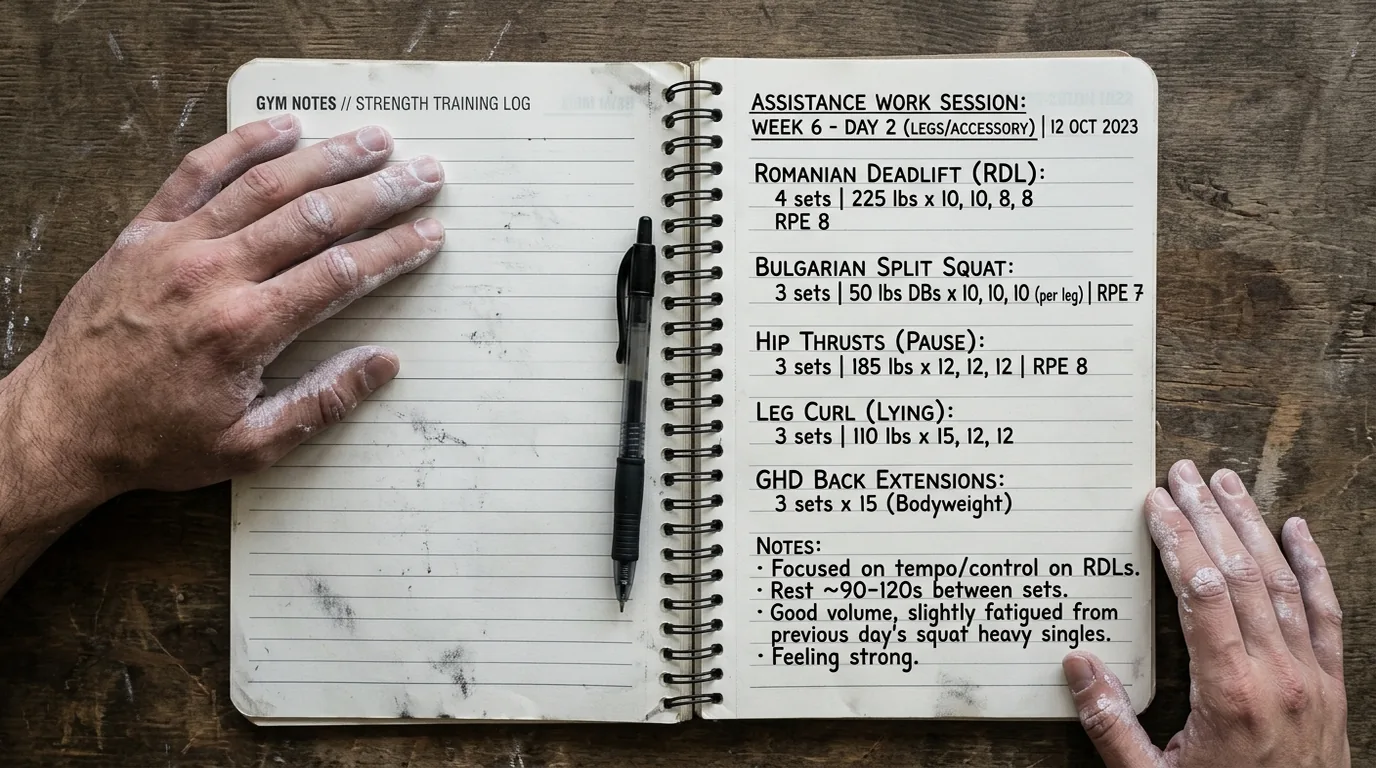 GYM NOTES // STRENGTH TRAINING LOG
ASSISTANCE WORK SESSION:
WEEK 6 - DAY 2 (LEGS/ACCESSORY) | 12 OCT 2023
ROMANIAN DEADLIFT (RDL):
4 sets | 225 lbs x 10, 10, 8, 8
RPE 8
BULGARIAN SPLIT SQUAT:
3 sets | 50 lbs DBs x 10, 10, 10 (per leg) | RPE 7
HIP THRUSTS (PAUSE):
3 sets | 185 lbs x 12, 12, 12 | RPE 8
LEG CURL (LYING):
3 sets | 110 lbs x 15, 12, 12
GHD BACK EXTENSIONS:
3 sets x 15 (Bodyweight)
NOTES:
· Focused on tempo/control on RDLs.
· Rest ~90-120s between sets.
· Good volume, slightly fatigued from
previous day's squat heavy singles.
· Feeling strong.